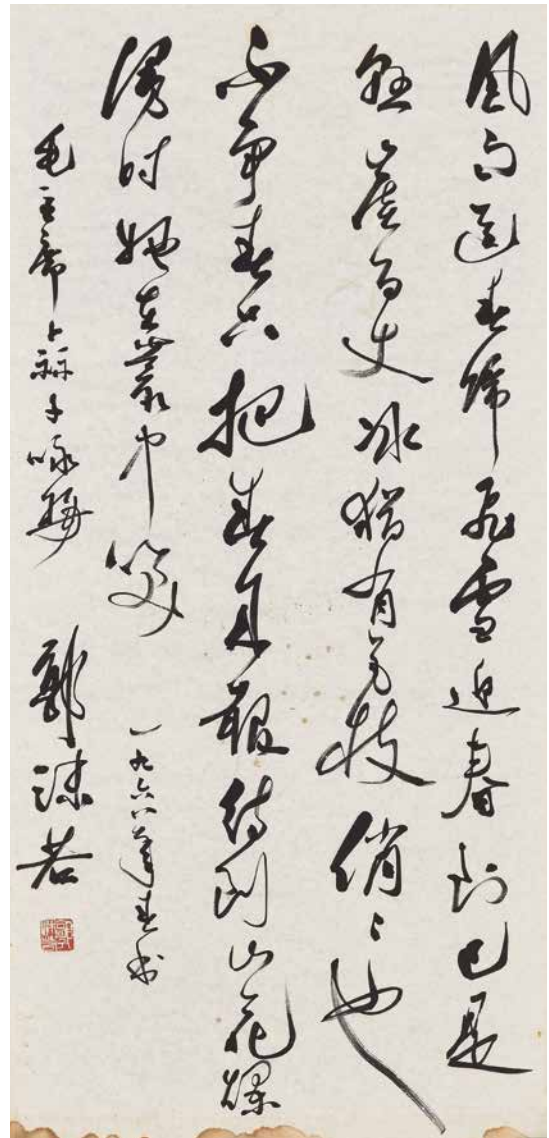 风雨送春歸飛雪迎春到已是
懸崖百丈冰猶有花枝俏〻也
不爭春只把春来報待到山花爛
漫时她在叢中笑 一九六八年春书
毛主席卜祘子咏梅 郭沫若